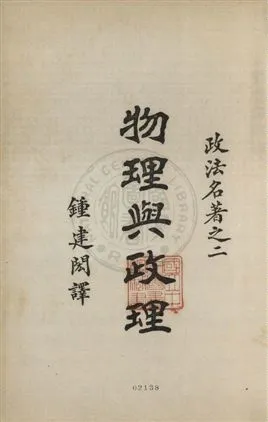 政法名著之二
物理與政理
鍾建閎譯
02138